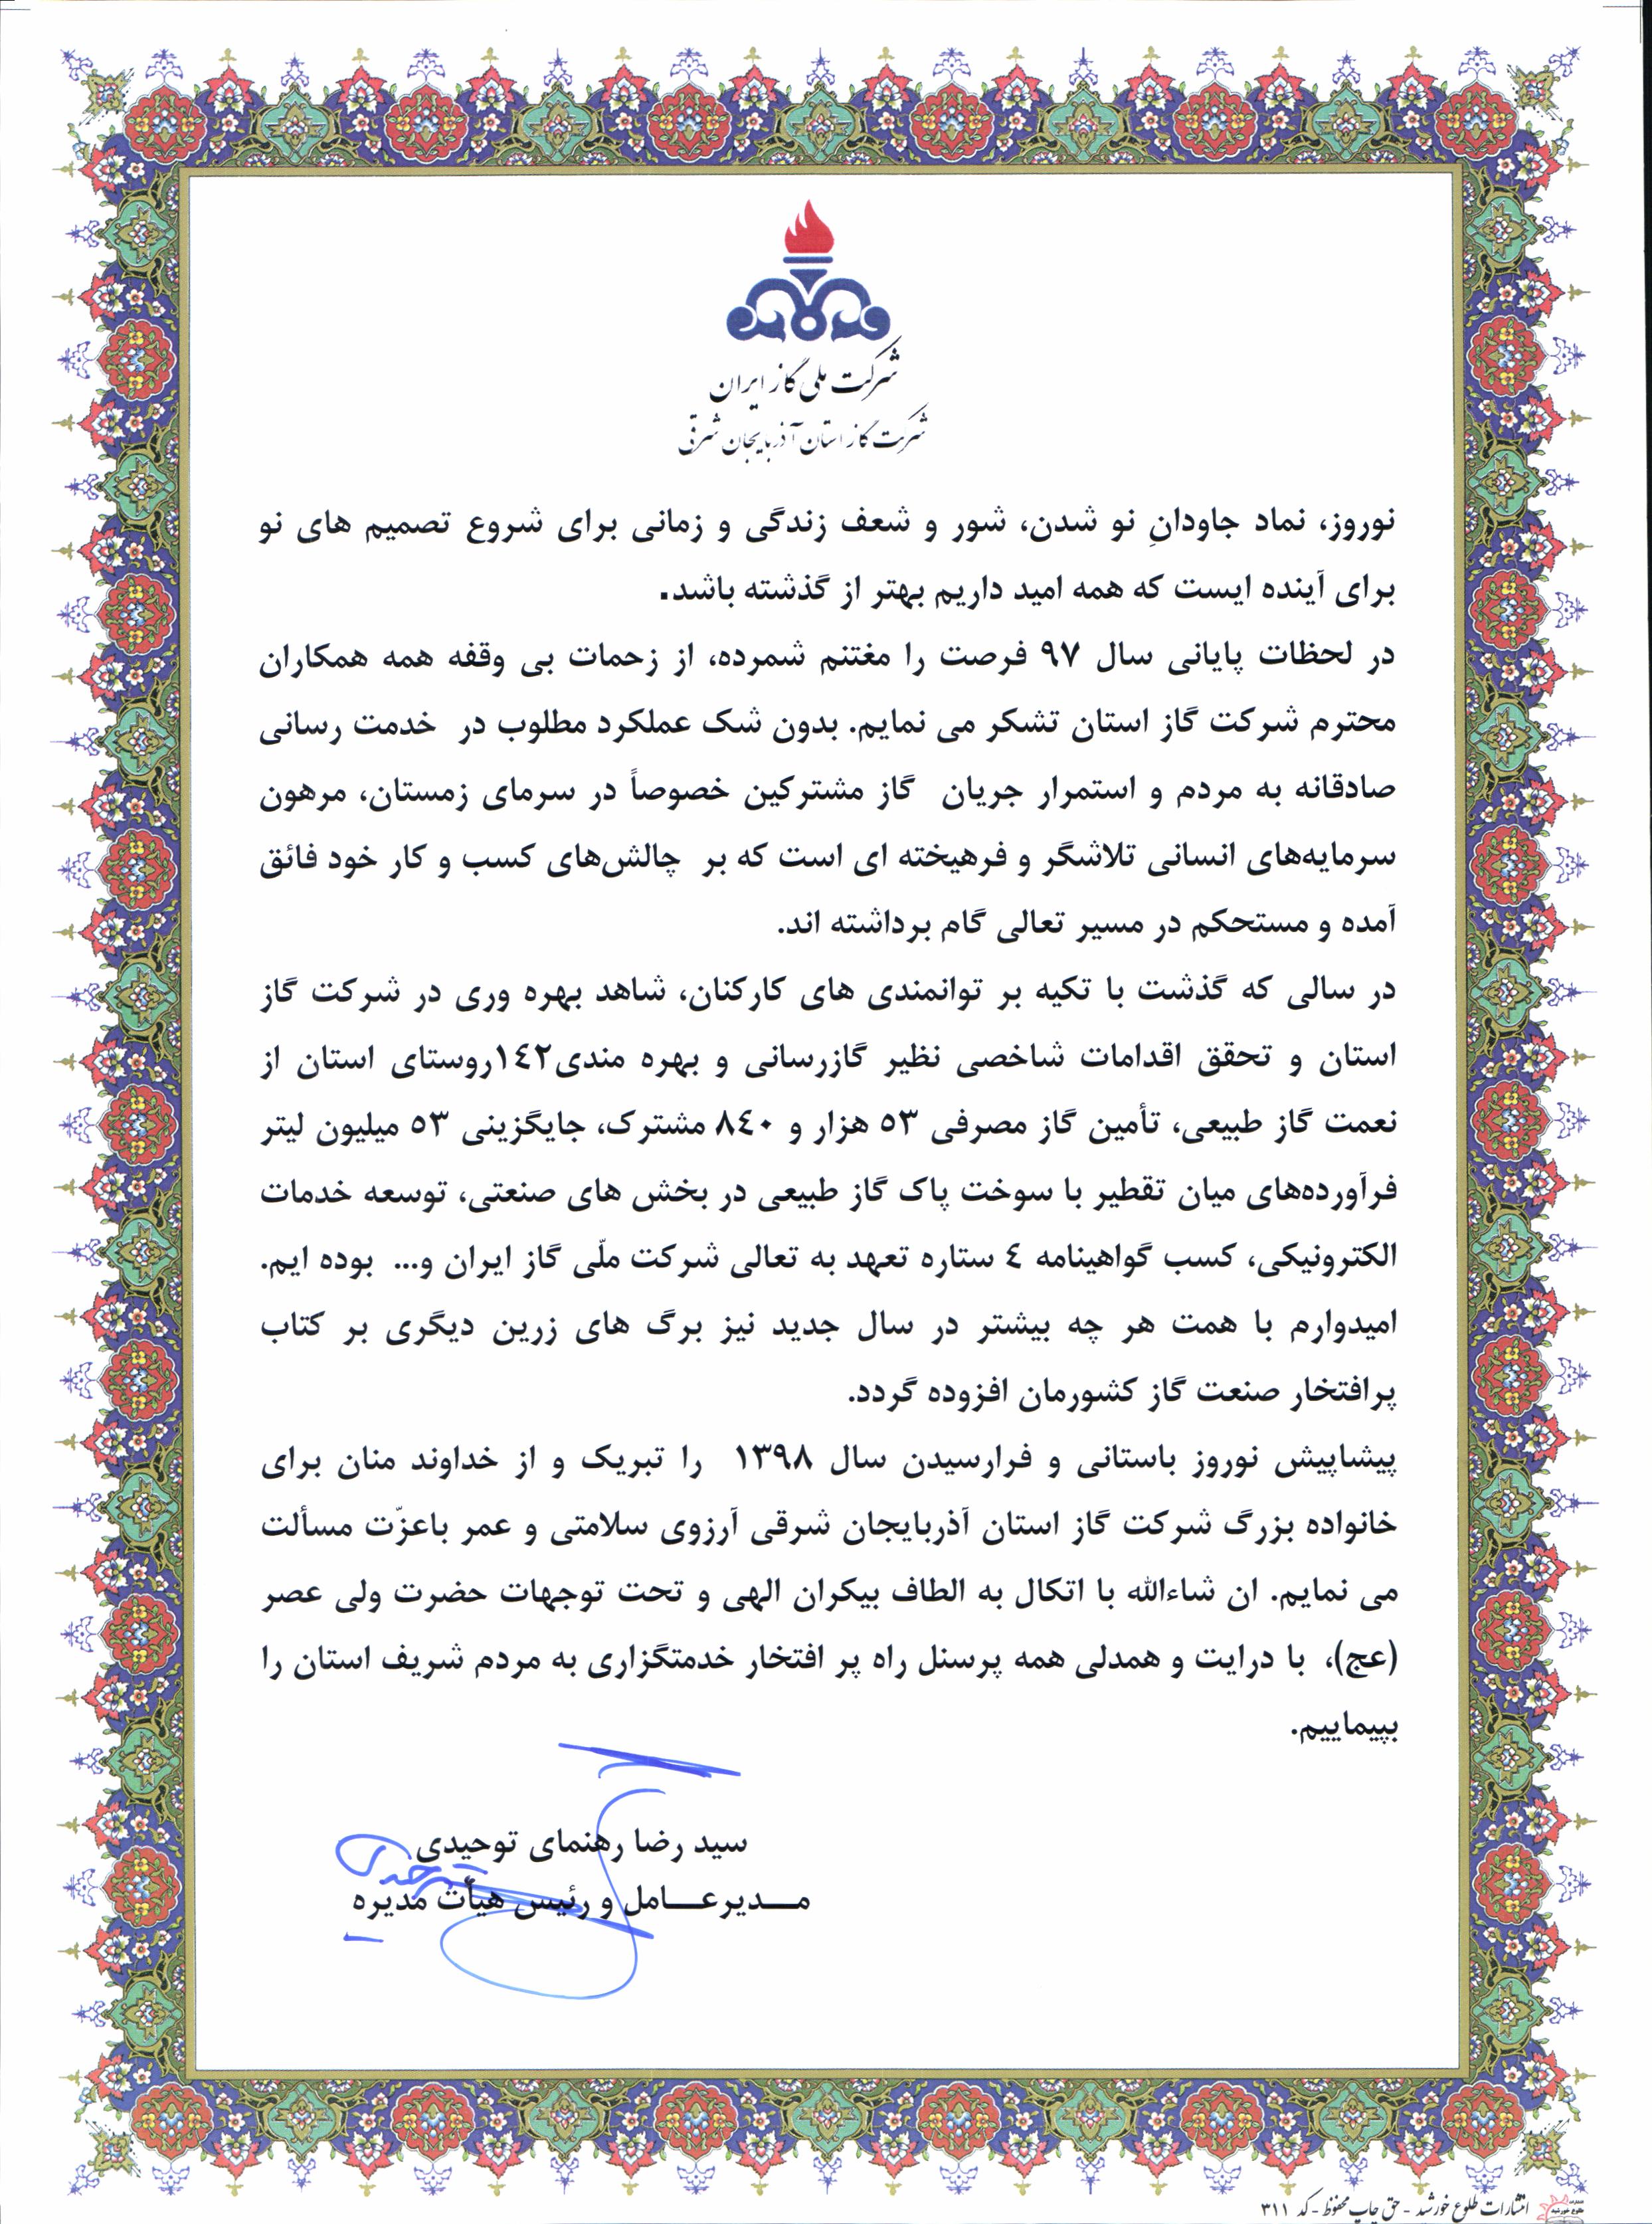 شرکت ملی گاز ایران
شرکت گاز استان آذربایجان شرقی
نوروز، نماد جاودانِ نو شدن، شور و شعف زندگی و زمانی برای شروع تصمیم های نو
برای آینده ایست که همه امید داریم بهتر از گذشته باشد.
در لحظات پایانی سال ۹۷ فرصت را مغتنم شمرده، از زحمات بی وقفه همه همکاران
محترم شرکت گاز استان تشکر می نمایم. بدون شک عملکرد مطلوب در خدمت رسانی
صادقانه به مردم و استمرار جریان گاز مشترکین خصوصاً در سرمای زمستان، مرهون
سرمایه‌های انسانی تلاشگر و فرهیخته ای است که بر چالش‌های کسب و کار خود فائق
آمده و مستحکم در مسیر تعالی گام برداشته اند.
در سالی که گذشت با تکیه بر توانمندی های کارکنان، شاهد بهره وری در شرکت گاز
استان و تحقق اقدامات شاخصی نظیر گازرسانی و بهره مندی١٤٢روستای استان از
نعمت گاز طبیعی، تأمین گاز مصرفی ٥٣ هزار و ٨٤٠ مشترک، جایگزینی ٥٣ میلیون لیتر
فرآورده‌های میان تقطیر با سوخت پاک گاز طبیعی در بخش های صنعتی، توسعه خدمات
الکترونیکی، کسب گواهینامه ٤ ستاره تعهد به تعالی شرکت ملّی گاز ایران و... بوده ایم.
امیدوارم با همت هر چه بیشتر در سال جدید نیز برگ های زرین دیگری بر کتاب
پرافتخار صنعت گاز کشورمان افزوده گردد.
پیشاپیش نوروز باستانی و فرارسیدن سال ۱۳۹۸ را تبریک و از خداوند منان برای
خانواده بزرگ شرکت گاز استان آذربایجان شرقی آرزوی سلامتی و عمر باعزّت مسألت
می نمایم. ان شاءالله با اتکال به الطاف بیکران الهی و تحت توجهات حضرت ولی عصر
(عج)، با درایت و همدلی همه پرسنل راه پر افتخار خدمتگزاری به مردم شریف استان را
بپیماییم.
سید رضا رهنمای توحیدی
مـــدیرعـــامل و رئیس هیأت مدیره
انتشارات طلوع خورشید - حق چاپ محفوظ - کد ۳۱۱